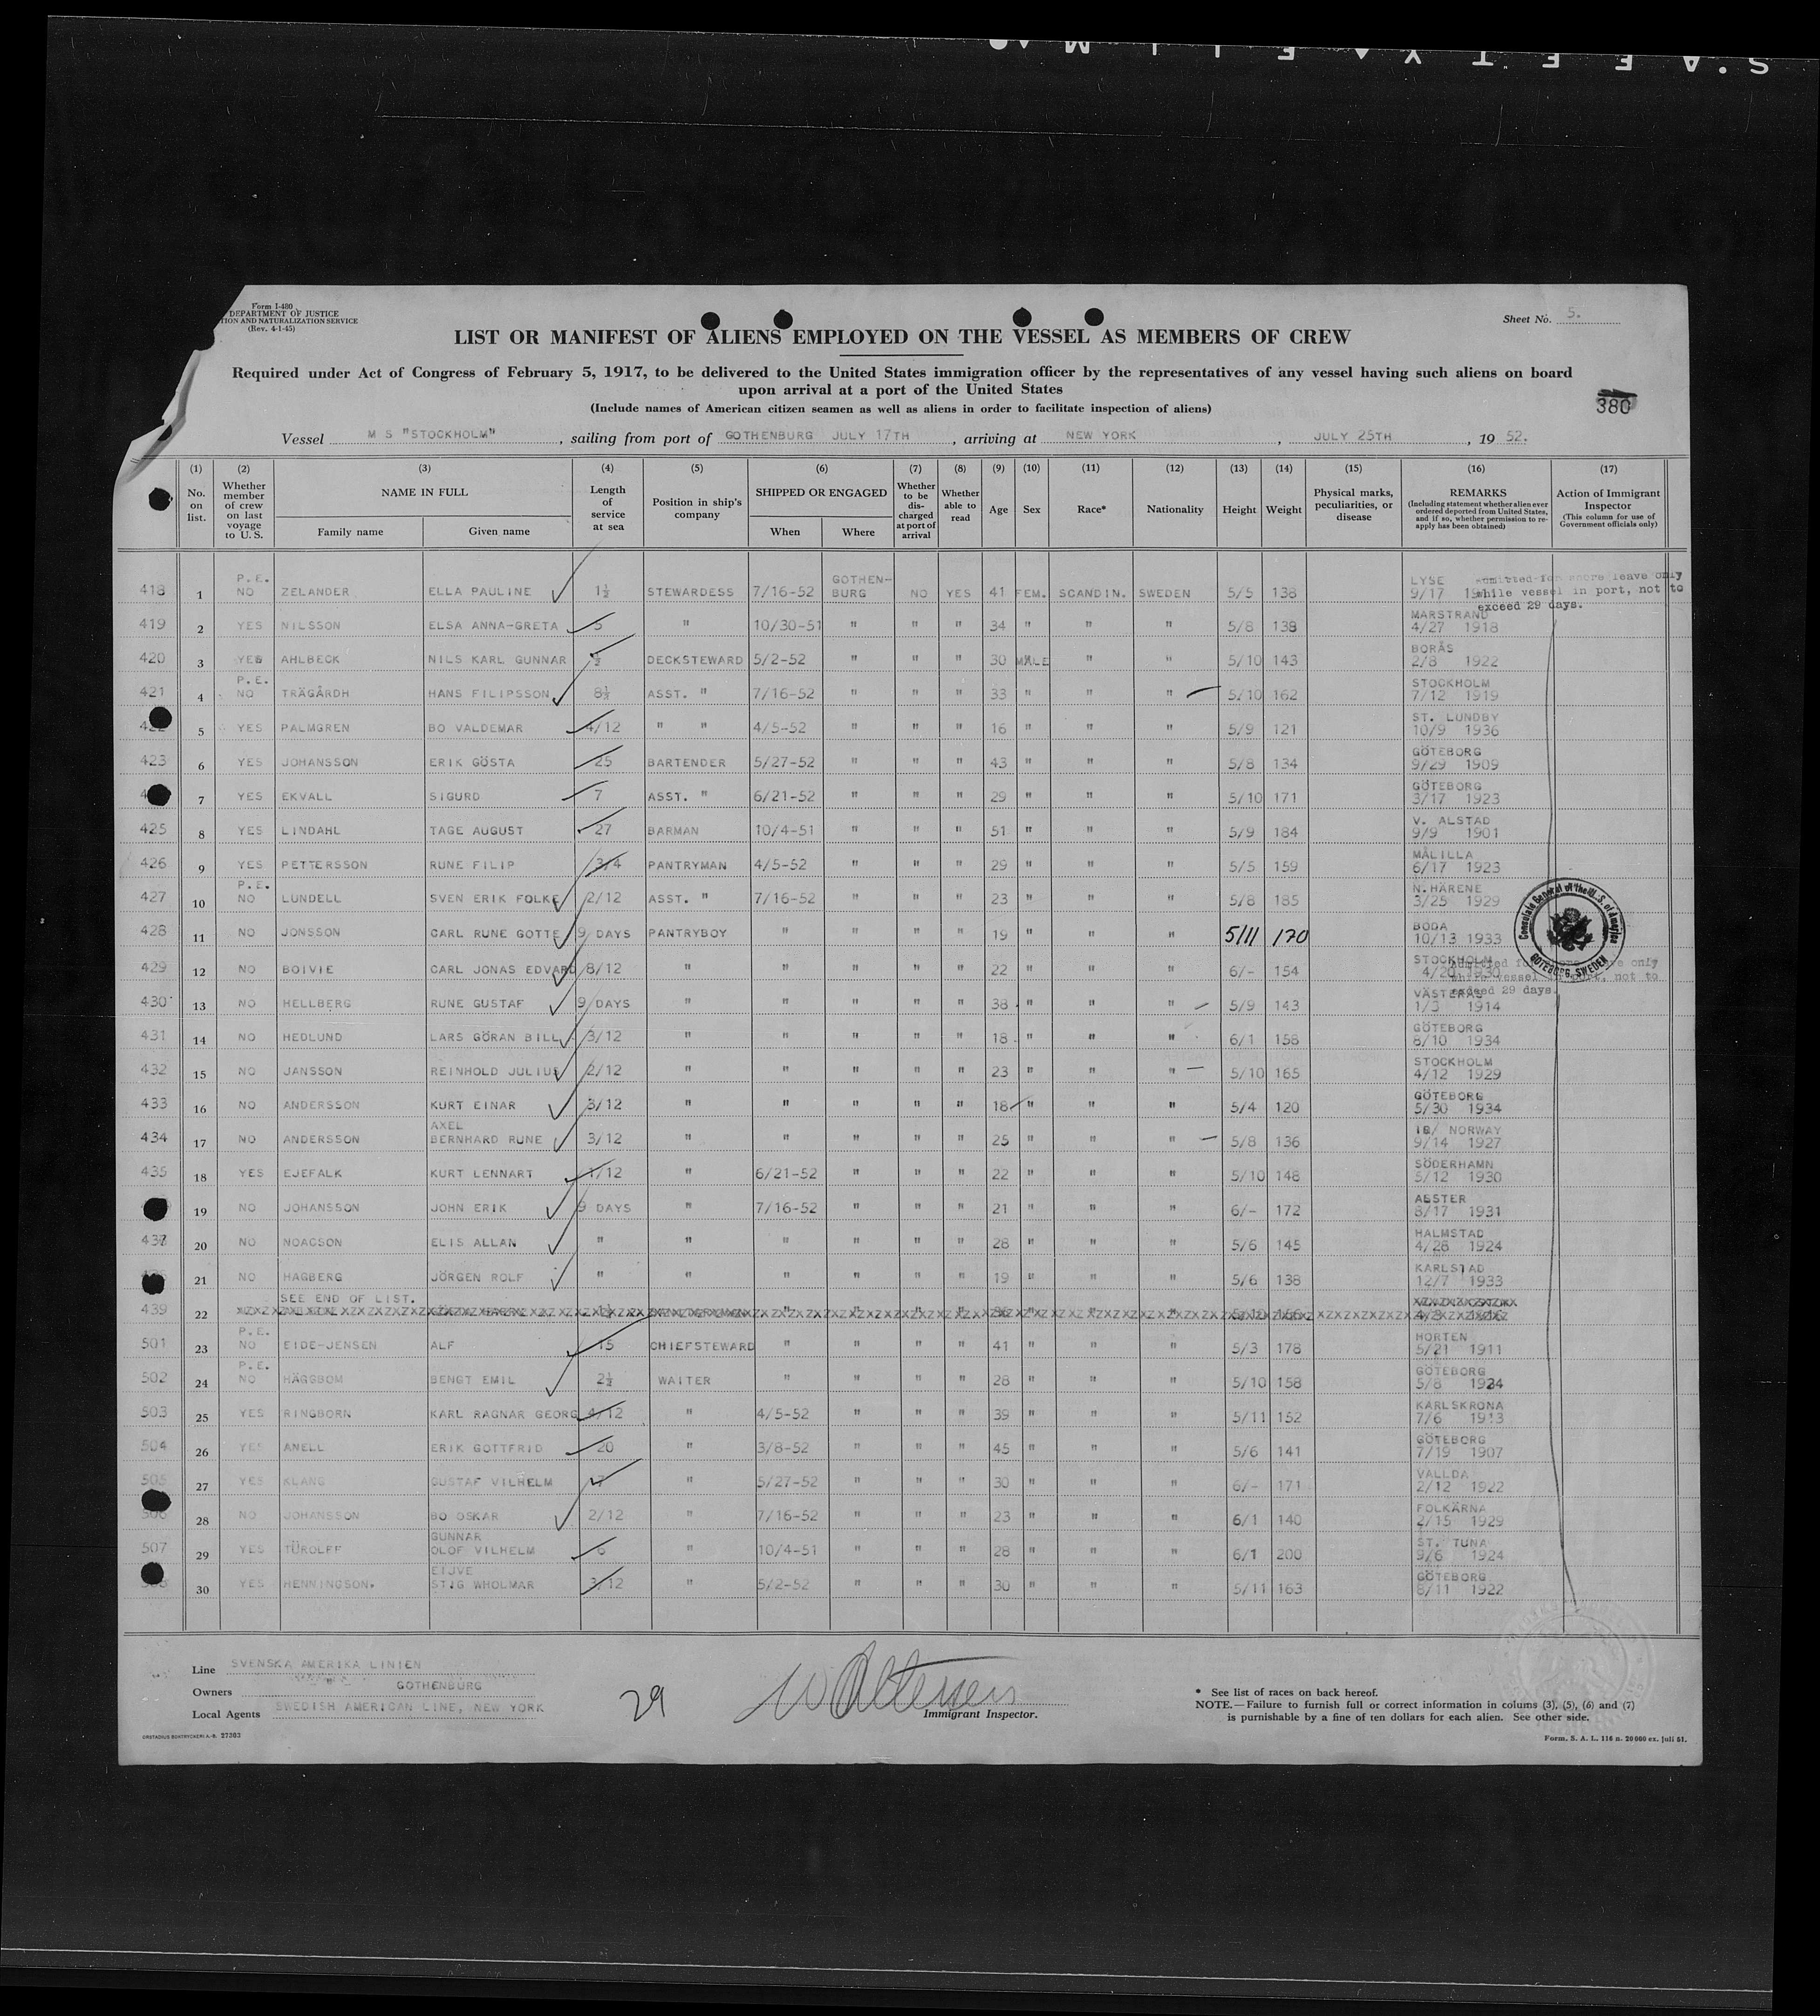 S.A FEETYAFILM
Form I-480
DEPARTMENT OF JUSTICE
TION AND NATURALIZATION SERVICE
(Rev. 4-1-45)
Sheet No. 5.
LIST OR MANIFEST OF ALIENS EMPLOYED ON THE VESSEL AS MEMBERS OF CREW
Required under Act of Congress of February 5, 1917, to be delivered to the United States immigration officer by the representatives of any vessel having such aliens on board
upon arrival at a port of the United States
(Include names of American citizen seamen as well as aliens in order to facilitate inspection of aliens)
380
Vessel M S "STOCKHOLM", sailing from port of GOTHENBURG JULY 17TH, arriving at NEW YORK, JULY 25TH, 19 52.
(1) (2) (3) (4) (5) (6) (7) (8) (9) (10) (11) (12) (13) (14) (15) (16) (17)
No. on list. Whether member of crew on last voyage to U.S. NAME IN FULL Family name Given name Length of service at sea Position in ship's company SHIPPED OR ENGAGED When Where Whether to be discharged at port of arrival Whether able to read Age Sex Race* Nationality Height Weight Physical marks, peculiarities, or disease REMARKS (Including statement whether alien ever ordered deported from United States, and if so, whether permission to re-apply has been obtained) Action of Immigrant Inspector (This column for use of Government officials only)
418 1 P.E. NO ZELANDER ELLA PAULINE 1½ STEWARDESS 7/16-52 GOTHEN-BURG NO YES 41 FEM. SCANDIN. SWEDEN 5/5 138 LYSE 9/17
Admitted for shore leave only
while vessel in port, not to
exceed 29 days.
419 2 YES NILSSON ELSA ANNA-GRETA 5 " 10/30-51 " " " 34 " " " 5/8 138 MARSTRAND 4/27 1918
420 3 YES AHLBECK NILS KARL GUNNAR DECKSTEWARD 5/2-52 " " " 30 MALE " " 5/10 143 BORÅS 2/8 1922
421 4 P.E. NO TRÄGÅRDH HANS FILIPSSON 8½ ASST. " 7/16-52 " " " 33 " " " 5/10 162 STOCKHOLM 7/12 1919
422 5 YES PALMGREN BO VALDEMAR 4/12 " " 4/5-52 " " " 16 " " " 5/9 121 ST. LUNDBY 10/9 1936
423 6 YES JOHANSSON ERIK GÖSTA 25 BARTENDER 5/27-52 " " " 43 " " " 5/8 134 GÖTEBORG 9/29 1909
7 YES EKVALL SIGURD 7 ASST. " 6/21-52 " " " 29 " " " 5/10 171 GÖTEBORG 3/17 1923
425 8 YES LINDAHL TAGE AUGUST 27 BARMAN 10/4-51 " " " 51 " " " 5/9 184 V. ALSTAD 9/9 1901
426 9 YES PETTERSSON RUNE FILIP 3/4 PANTRYMAN 4/5-52 " " " 29 " " " 5/5 159 MÅLILLA 6/17 1923
427 10 P.E. NO LUNDELL SVEN ERIK FOLKE 2/12 ASST. " 7/16-52 " " " 23 " " " 5/8 185 N.HÄRENE 3/25 1929
428 11 NO JONSSON CARL RUNE GOTTE 9 DAYS PANTRYBOY " " " " 19 " " " 5/11 170 BODA 10/13 1933
429 12 NO BOIVIE CARL JONAS EDVARD 8/12 " " " " " 22 " " " 6/- 154 STOCKHOLM 4/20 1930
Consulate General of the U.S. of America
GÖTEBORG, SWEDEN
Admitted for shore leave only
while vessel in port, not to
exceed 29 days.
430 13 NO HELLBERG RUNE GUSTAF 9 DAYS " " " " " 38 " " " 5/9 143 VÄSTERÅS 1/3 1914
431 14 NO HEDLUND LARS GÖRAN BILL 3/12 " " " " " 18 " " " 6/1 158 GÖTEBORG 8/10 1934
432 15 NO JANSSON REINHOLD JULIUS 2/12 " " " " " 23 " " " 5/10 165 STOCKHOLM 4/12 1929
433 16 NO ANDERSSON KURT EINAR 3/12 " " " " " 18 " " " 5/4 120 GÖTEBORG 5/30 1934
434 17 NO ANDERSSON AXEL BERNHARD RUNE 3/12 " " " " " 25 " " " 5/8 136 NORWAY 9/14 1927
435 18 YES EJEFALK KURT LENNART 1/12 " 6/21-52 " " " 22 " " " 5/10 148 SÖDERHAMN 5/12 1930
19 NO JOHANSSON JOHN ERIK 9 DAYS " 7/16-52 " " " 21 " " " 6/- 172 ALSTER 8/17 1931
437 20 NO NOACSON ELIS ALLAN " " " " " " 28 " " " 5/6 145 HALMSTAD 4/28 1924
21 NO HAGBERG JÖRGEN ROLF " " " " " " 19 " " " 5/6 138 KARLSTAD 12/7 1933
439 22 SEE END OF LIST.
501 23 P.E. NO EIDE-JENSEN ALF 15 CHIEFSTEWARD " " " " 41 " " " 5/3 178 HORTEN 5/21 1911
502 24 P.E. NO HÄGGBOM BENGT EMIL 2½ WAITER " " " " 28 " " " 5/10 158 GÖTEBORG 5/8 1924
503 25 YES RINGBORN KARL RAGNAR GEORG 4/12 " 4/5-52 " " " 39 " " " 5/11 152 KARLSKRONA 7/6 1913
504 26 YES ANELL ERIK GOTTFRID 20 " 3/8-52 " " " 45 " " " 5/6 141 GÖTEBORG 7/19 1907
505 27 YES KLANG GUSTAF VILHELM " 5/27-52 " " " 30 " " " 6/- 171 VALLDA 2/12 1922
506 28 NO JOHANSSON BO OSKAR 2/12 " 7/16-52 " " " 23 " " " 6/1 140 FOLKÄRNA 2/15 1929
507 29 YES TÜROLFF GUNNAR OLOF VILHELM 6 " 10/4-51 " " " 28 " " " 6/1 200 ST. TUNA 9/6 1924
30 YES HENNINGSON. EIJVE STIG WHOLMAR 3/12 " 5/2-52 " " " 30 " " " 5/11 163 GÖTEBORG 8/11 1922
Line SVENSKA AMERIKA LINIEN
Owners GOTHENBURG
Local Agents SWEDISH AMERICAN LINE, NEW YORK
29
Immigrant Inspector.
* See list of races on back hereof.
NOTE.—Failure to furnish full or correct information in colums (3), (5), (6) and (7)
is punishable by a fine of ten dollars for each alien. See other side.
ORSTADIUS BOKTRYCKERI A.-B. 27303
Form. S. A. L. 116 n. 20 000 ex. Juli 51.